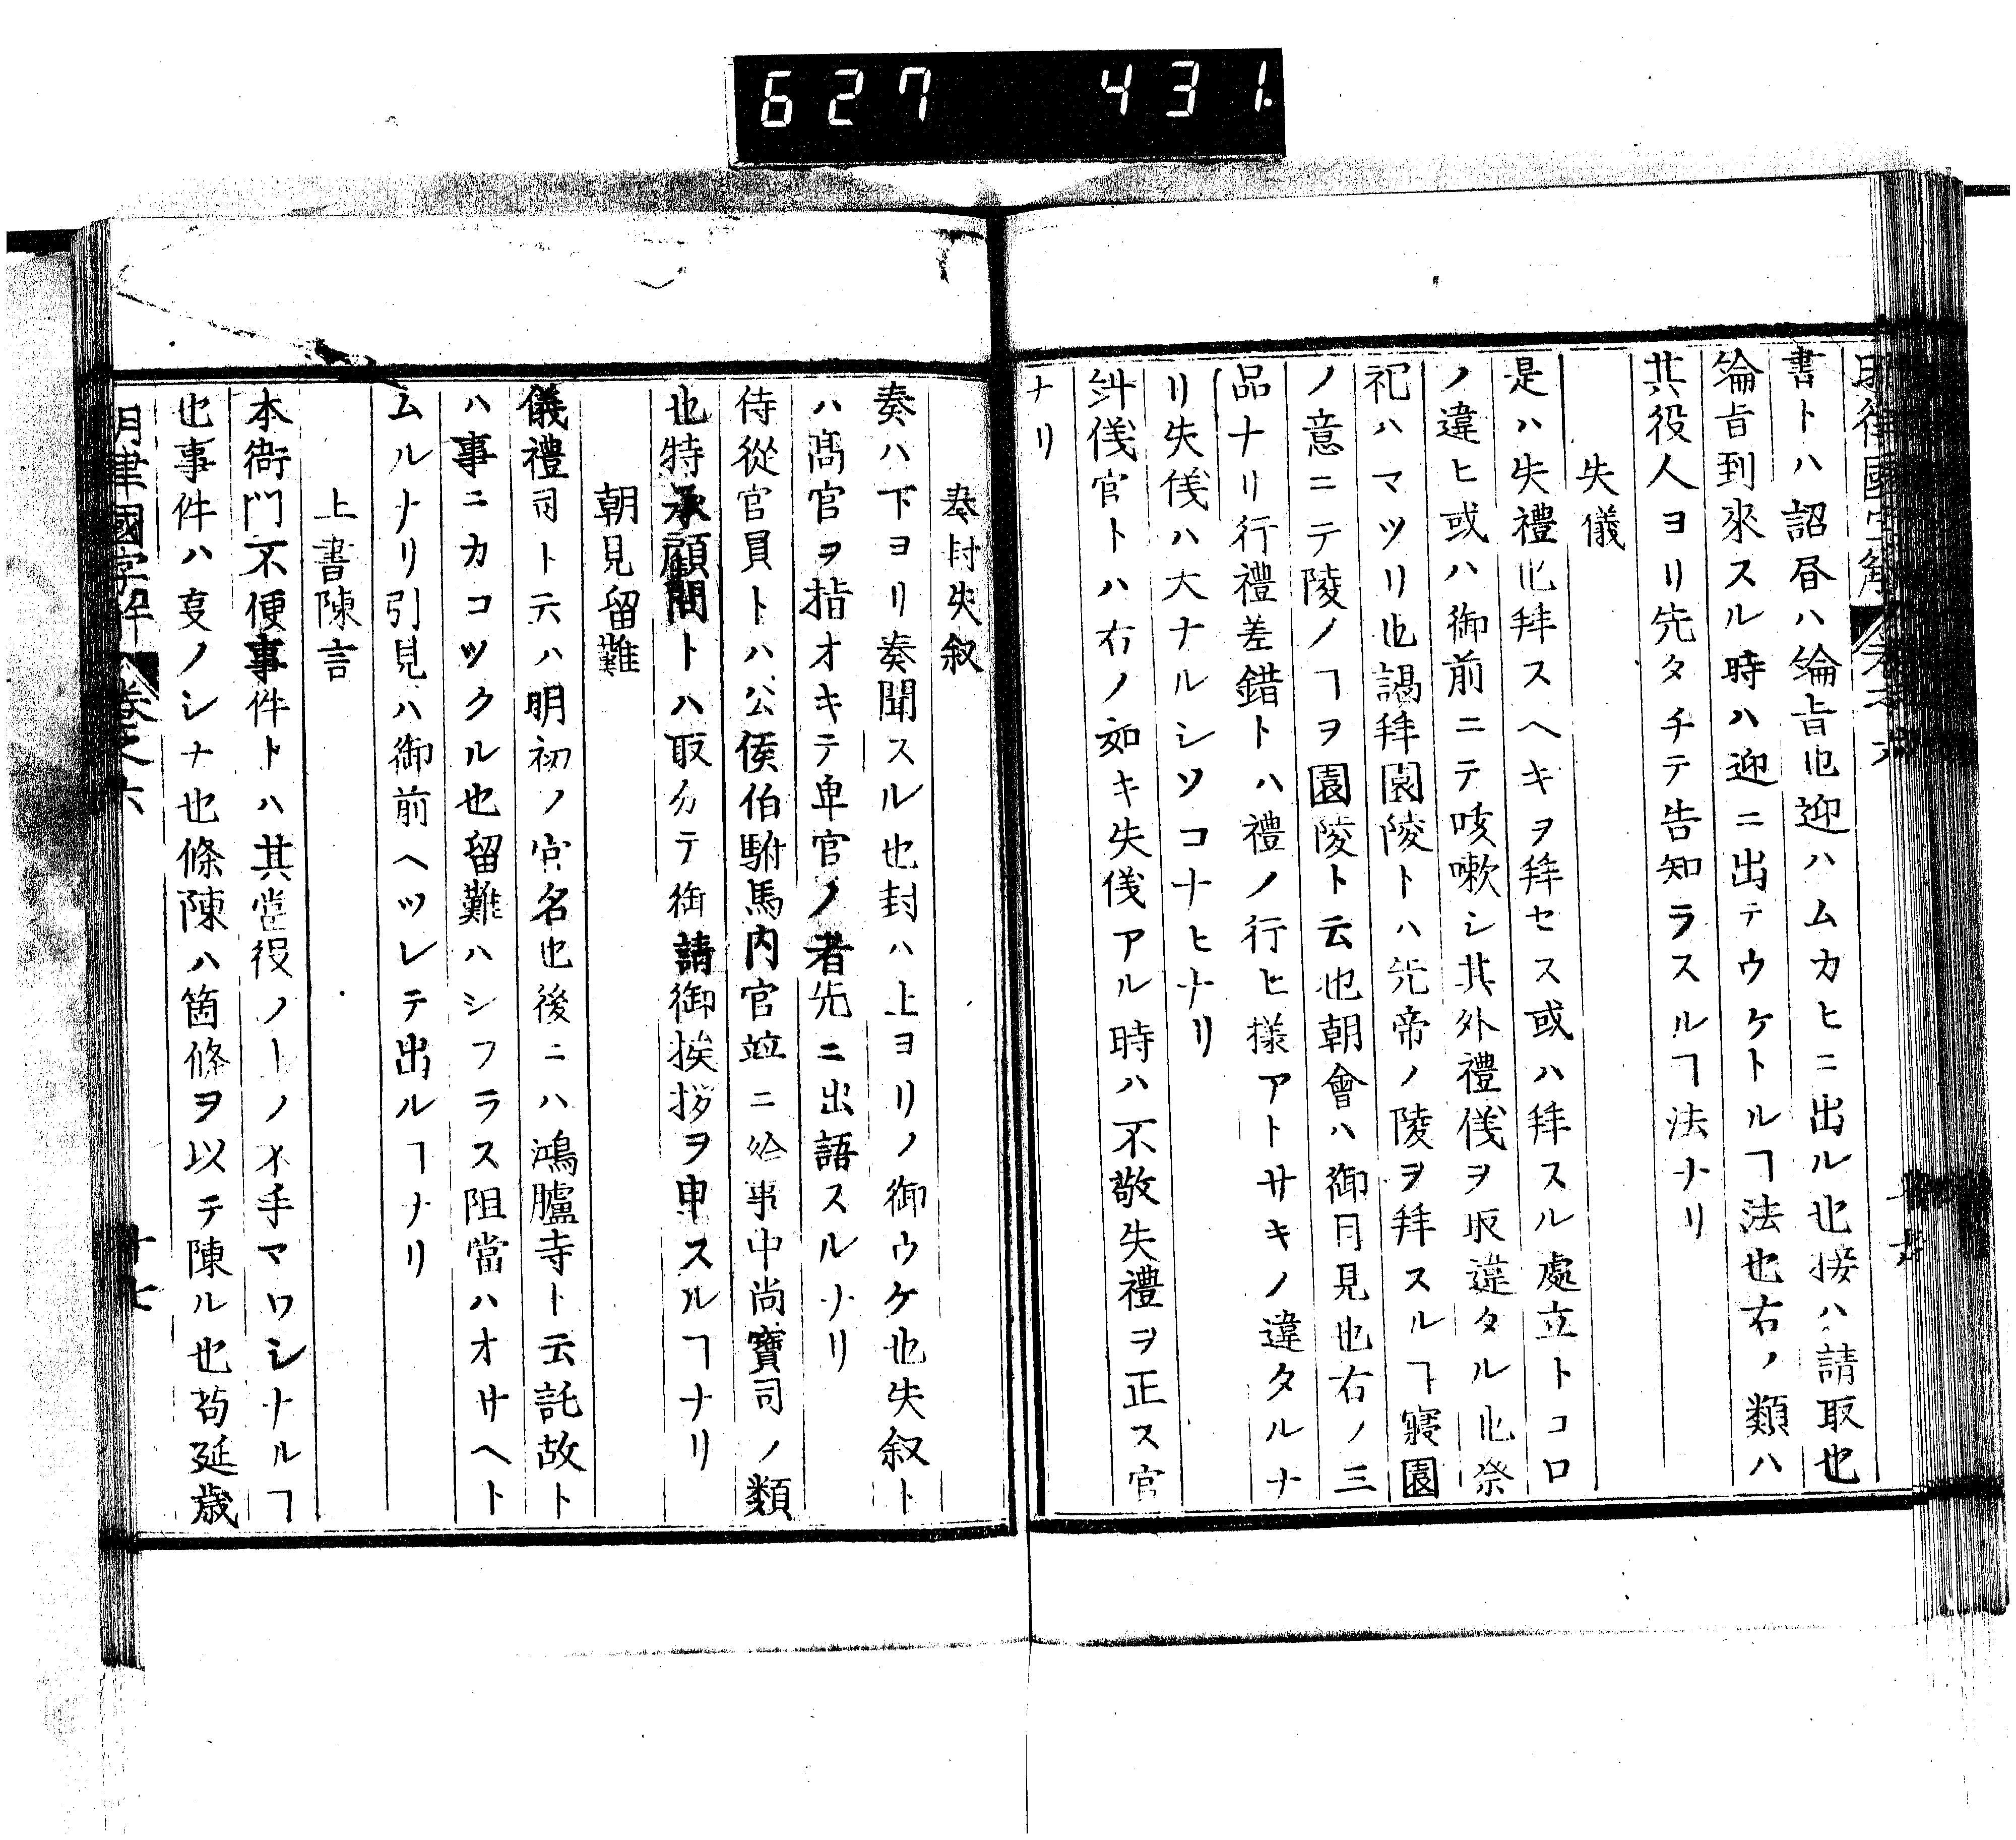 627 431
明律國字解 卷之六
書トハ詔昏ハ綸旨也迎ハムカヒニ出ル也接ハ請取也
綸旨到來スル時ハ迎ニ出テウケトルヿ法也右ノ類ハ
其役人ヨリ先タチテ告知ラスルヿ法ナリ
失儀
是ハ失禮也拜スヘキヲ拜セス或ハ拜スル處立トコロ
ノ違ヒ或ハ御前ニテ咳嗽シ其外禮儀ヲ取違タル也祭
祀ハマツリ也謁拜園陵トハ先帝ノ陵ヲ拜スルヿ寢園
ノ意ニテ陵ノヿヲ園陵ト云也朝會ハ御目見也右ノ三
品ナリ行禮差錯トハ禮ノ行ヒ樣アトサキノ違タルナ
リ失儀ハ大ナルシソコナヒナリ
糾儀官トハ右ノ如キ失儀アル時ハ不敬失禮ヲ正ス官
ナリ
奏対失叙
奏ハ下ヨリ奏聞スル也封ハ上ヨリノ御ウケ也失叙ト
ハ髙官ヲ指オキテ卑官ノ者先ニ出語スルナリ
侍從官員トハ公侯伯駙馬內官竝ニ給事中尚寶司ノ類
也特承顧問トハ取分テ御請御挨拶ヲ申スルヿナリ
朝見留難
儀禮司ト云ハ明初ノ官名也後ニハ鴻臚寺ト云託故ト
ハ事ニカコツクル也留難ハシフラス阻當ハオサヘト
ムルナリ引見ハ御前ヘツレテ出ルヿナリ
上書陳言
本衙門不便事件トハ其當役ノ丨ノ不手マワシナルヿ
也事件ハ事ノシナ也條陳ハ箇條ヲ以テ陳ル也苟延歳
明律國字解 卷之六 十七